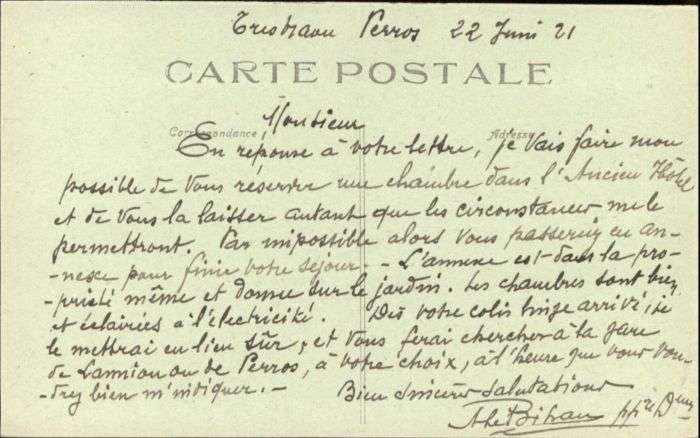 Trestraou Perros 22 Juni 21
CARTE POSTALE
Correspondance Adresse
Monsieur
En réponse à votre lettre, je vais faire mon
possible de vous réserver une chambre dans l'Ancien Hôtel
et de vous la laisser autant que les circonstances me le
permettront. Par impossible alors vous passeriez en an-
-nexe pour finir votre séjour. - L'annexe est dans la pro-
-priété même et donne sur le jardin. Les chambres sont bien
et éclairées à l'électricité. Dès votre colis linge arrivé, je
le mettrai en lieu sûr, et vous ferai chercher à la gare
de Lannion ou de Perros, à votre choix, à l'heure que vous vou-
drez bien m'indiquer. -
Bien sincères salutations